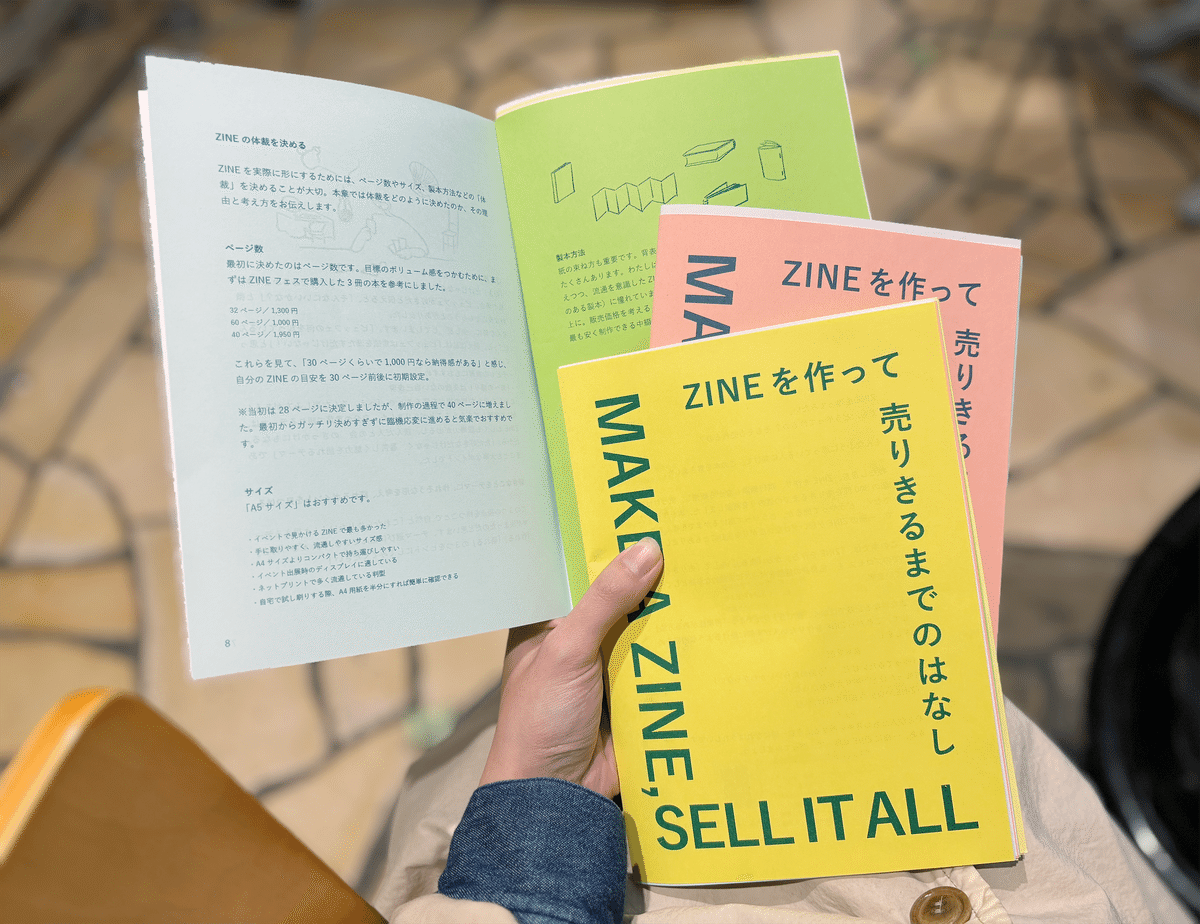 ZINEの体裁を決める
ZINEを実際に形にするためには、ページ数やサイズ、製本方法などの「体
裁」を決めることが大切。本章では体裁をどのように決めたのか、その理
由と考え方をお伝えします。
ページ数
最初に決めたのはページ数です。目標のボリューム感をつかむために、ま
ずはZINEフェスで購入した3冊の本を参考にしました。
32ページ／1,300円
60ページ／1,000円
40ページ／1,950円
これらを見て、「30ページくらいで1,000円なら納得感がある」と感じ、
自分のZINEの目安を30ページ前後に初期設定。
※当初は28ページに決定しましたが、制作の過程で40ページに増えまし
た。最初からガッチリ決めすぎずに臨機応変に進めると気楽でおすすめで
す。
サイズ
「A5サイズ」はおすすめです。
・イベントで見かけるZINEで最も多かった
・手に取りやすく、流通しやすいサイズ感
・A4サイズよりコンパクトで持ち運びしやすい
・イベント出展時のディスプレイに適している
・ネットプリントで多く流通している判型
・自宅で試し刷りする際、A4用紙を半分にすれば簡単に確認できる
8
製本方法
紙の束ね方も重要です。背表
たくさんあります。わたしは
えつつ、流通を意識したZI
のある製本）に憧れていま
上に。販売価格を考える
最も安く制作できる中綴
MA
ZINEを作って
売りきる
ZINEを作って
売りきるまでのはなし
MAKE A ZINE,
SELL IT ALL